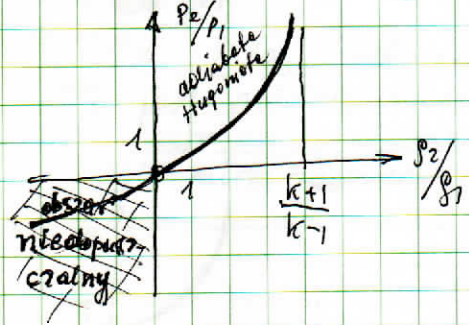 P2/P1
adiabata
Hugoniota
1
1
ρ2/ρ1
k+1
k-1
obszar
niedopusz-
czalny